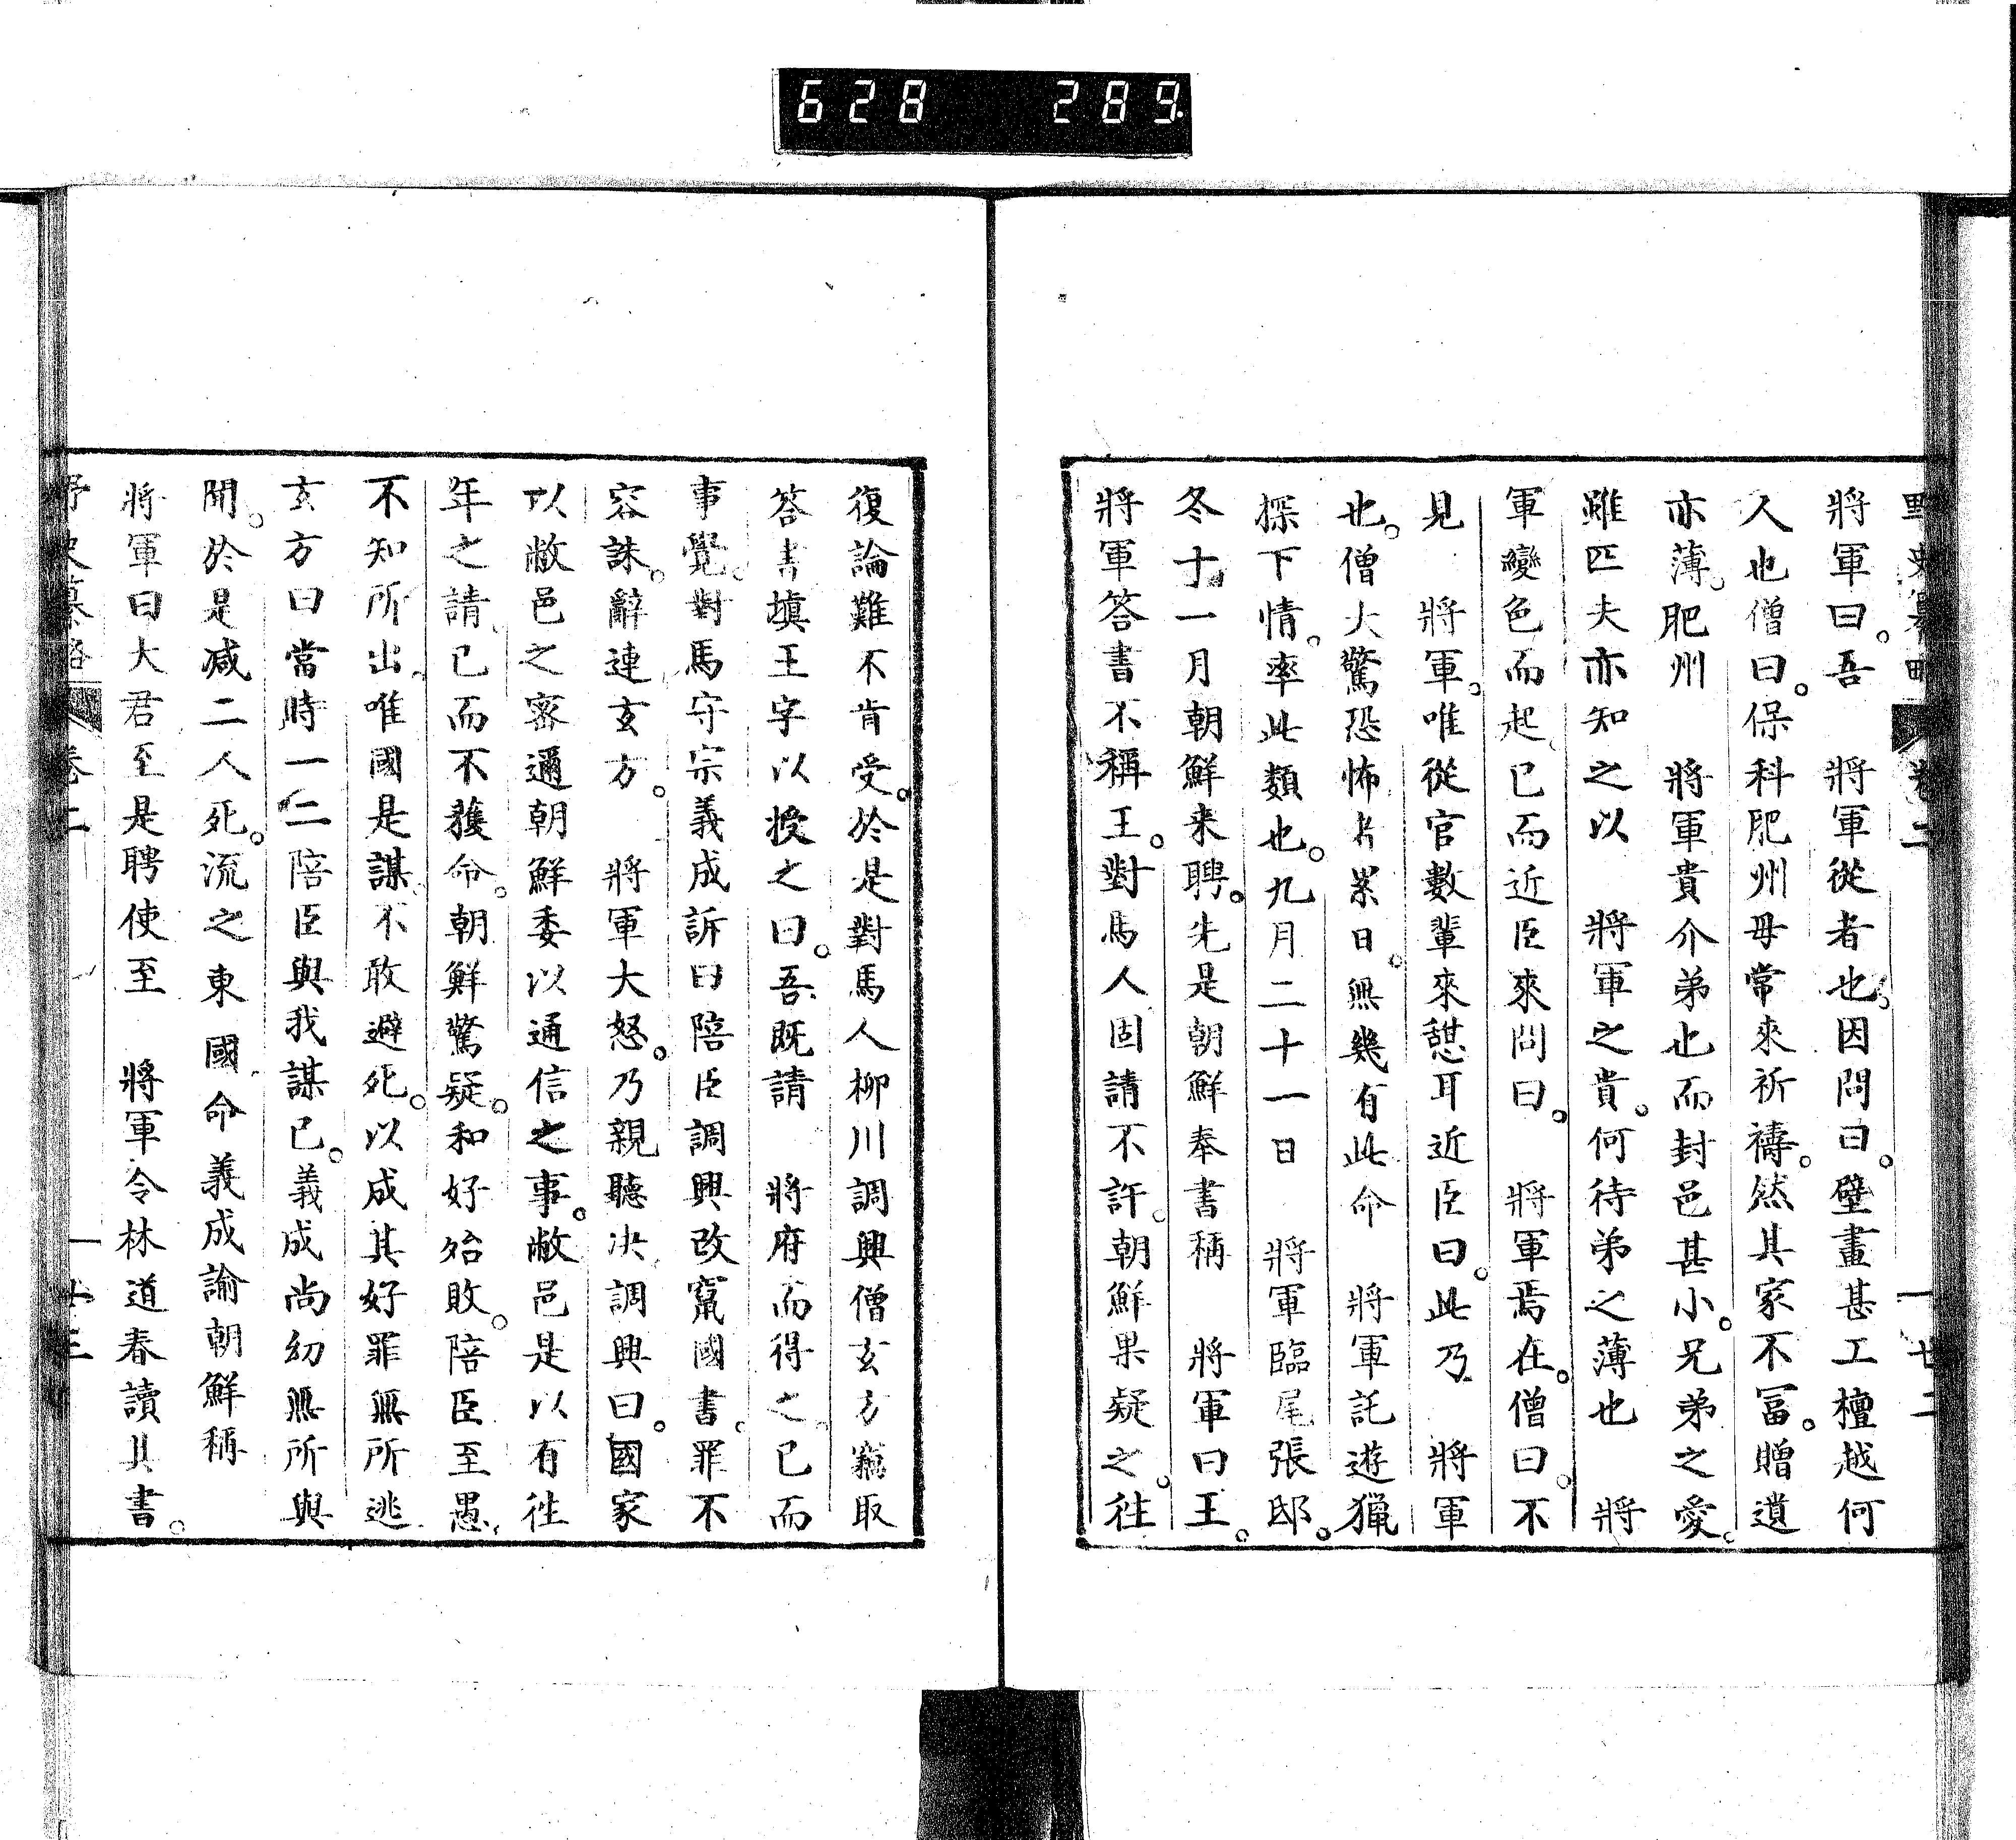 628 289
野史纂略 卷二 一 廿二
將軍曰。吾 將軍從者也。因問曰。壁畫甚工檀越何
人也僧曰。保科肥州母常來祈禱。然其家不冨。贈遺
亦薄。肥州 將軍貴介弟也而封邑甚小。兄弟之愛。
雖匹夫亦知之以 將軍之貴。何待弟之薄也 將
軍變色而起。已而近臣來問曰。 將軍焉在。僧曰。不
見 將軍。唯從官數輩來憩耳近臣曰。此乃 將軍
也。僧大驚恐怖者累日。無幾有此命 將軍託遊獵
探下情。率此類也。九月二十一日 將軍臨尾張邸。
冬十一月朝鮮来聘。先是朝鮮奉書稱 將軍曰王。
將軍答書不稱王。對馬人固請不許。朝鮮果疑之。往
復論難不肯受。於是對馬人柳川調興僧玄方竊取
答書填王字以授之曰。吾既請 將府而得之。已而
事覺。對馬守宗義成訴曰陪臣調興改竄國書。罪不
容誅。辭連玄方。 將軍大怒。乃親聽决調興曰。國家
以敝邑之密邇朝鮮委以通信之事。敝邑是以有徃
年之請。已而不獲命。朝鮮驚疑。和好殆敗。陪臣至愚。
不知所出。唯國是謀。不敢避死。以成其好罪無所逃
玄方曰當時一二陪臣與我謀已。義成尚幼無所與
聞。於是减二人死。流之東國命義成諭朝鮮稱
將軍曰大君至是聘使至 將軍令林道春讀其書。
野史纂略 卷二 一 廿三